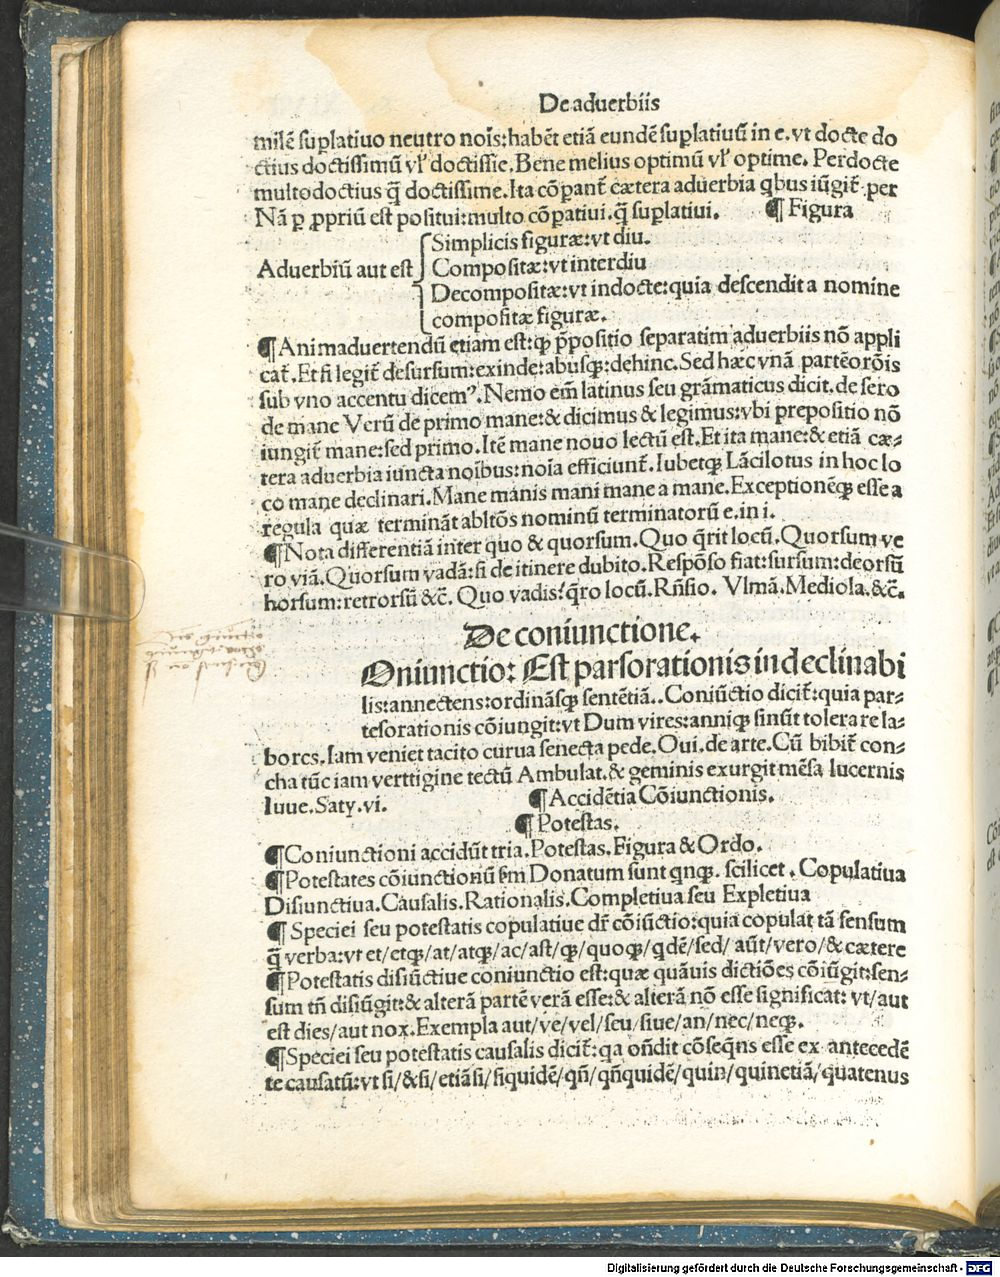 De aduerbiis
milẽ suplatiuo neutro noĩs:habẽt etiã eundẽ suplatiuũ in e.vt docte do
ctius doctissimũ vl' doctissie.Bene melius optimũ vl' optime. Perdocte
multo doctius q̃ doctissime.Ita cõpant̃ cætera aduerbia qbus iũgit̃ per
Nã p ppriũ est positui:multo cõpatiui.q̃ suplatiui. ¶ Figura
Simplicis figuræ:vt diu.
Aduerbiũ aut est Compositæ:vt interdiu
Decompositæ:vt indocte:quia descendit a nomine
compositæ figuræ.
¶ Animaduertendũ etiam est:qꝫ ppositio separatim aduerbiis nõ appli
cat̃.Et si legit̃ desursum:exinde:abusqꝫ:dehinc.Sed hæc vnã partẽ orõis
sub vno accentu dicemꝰ.Nemo em̃ latinus seu grãmaticus dicit.de sero
de mane Verũ de primo mane:& dicimus & legimus:vbi prepositio nõ
iungit̃ mane:sed primo.Itẽ mane nouo lectũ est.Et ita mane:& etiã cæ-
tera aduerbia iuncta noĩbus:noĩa efficiunt̃.Iubetqꝫ Lãcilotus in hoc lo
co mane declinari.Mane manis mani mane a mane.Exceptionẽqꝫ esse a
regula quæ terminãt abltõs nominũ terminatorũ e.in i.
¶ Nota differentiã inter quo & quorsum.Quo q̃rit locũ.Quorsum ve
ro viã.Quorsum vadã:si de itinere dubito.Respõso fiat:sursum:deorsũ
horsum:retrorsũ &c̃. Quo vadis:q̃ro locũ.Rñsio. Vlmã.Mediola.&c̃.
De coniunctione.
Oniunctio: Est pars orationis indeclinabi
lis:annectens:ordinãsqꝫ sentẽtiã..Coniũctio dicit̃:quia par-
tes orationis cõiungit:vt Dum vires:anniqꝫ sinũt tolerare la-
bores.Iam veniet tacito curua senecta pede.Oui.de arte.Cũ bibit̃ con-
cha tũc iam verttigine tectũ Ambulat.& geminis exurgit mẽsa lucernis
Iuue.Saty.vi. ¶ Accidẽtia Cõiunctionis.
¶ Potestas.
¶ Coniunctioni accidũt tria.Potestas.Figura & Ordo.
¶ Potestates cõiunctionũ s̃m Donatum sunt qnqꝫ. scilicet . Copulatiua
Disiunctiua.Causalis.Rationalis.Completiua seu Expletiua
¶ Speciei seu potestatis copulatiue dr̃ cõiũctio:quia copulat tã sensum
q̃ verba:vt et/etqꝫ/at/atqꝫ/ac/ast/qꝫ/quoqꝫ/qdẽ/sed/ aũt/vero/& cætere
¶ Potestatis disiũctiue coniunctio est:quæ quãuis dictiões cõiũgit:sen-
sum tñ disiũgit:& alterã partẽ verã esse:& alterã nõ esse significat: vt/aut
est dies/aut nox.Exempla aut/ve/vel/seu/siue/an/nec/neqꝫ.
¶ Speciei seu potestatis causalis dicit̃:qa oñdit cõseq̃ns esse ex antecedẽ
te causatũ:vt si/&si/etiãsi/siquidẽ/qñ/qñquidẽ/quin/quinetiã/quatenus
Digitalisierung gefördert durch die Deutsche Forschungsgemeinschaft - DFG